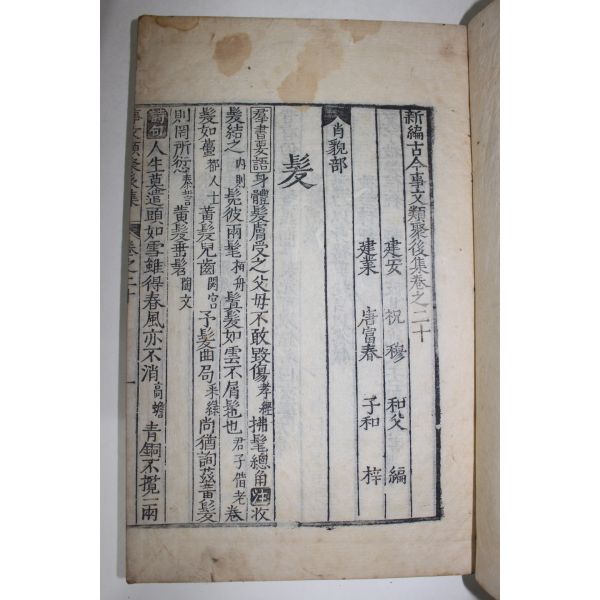 新編古今事文類聚後集卷之二十
建安 祝穆 和父 編
建業 唐富春 子和 梓
肖貌部
髪
群書要語身體髮膚受之父母不敢毀傷孝經拂髦總角注收
髮結之內則髧彼兩髦栢舟鬒髮如雲不屑髢也君子偕老卷
髮如蠆都人士黃髮兒齒閟宮予髮曲局采綠尚猶詢茲黃髮
則罔所愆秦誓黃髮垂髫陶文
詩句人生莫遣頭如雪雖得春風亦不消高蟾青銅不攬一兩
事文類聚後集 卷之二十 一